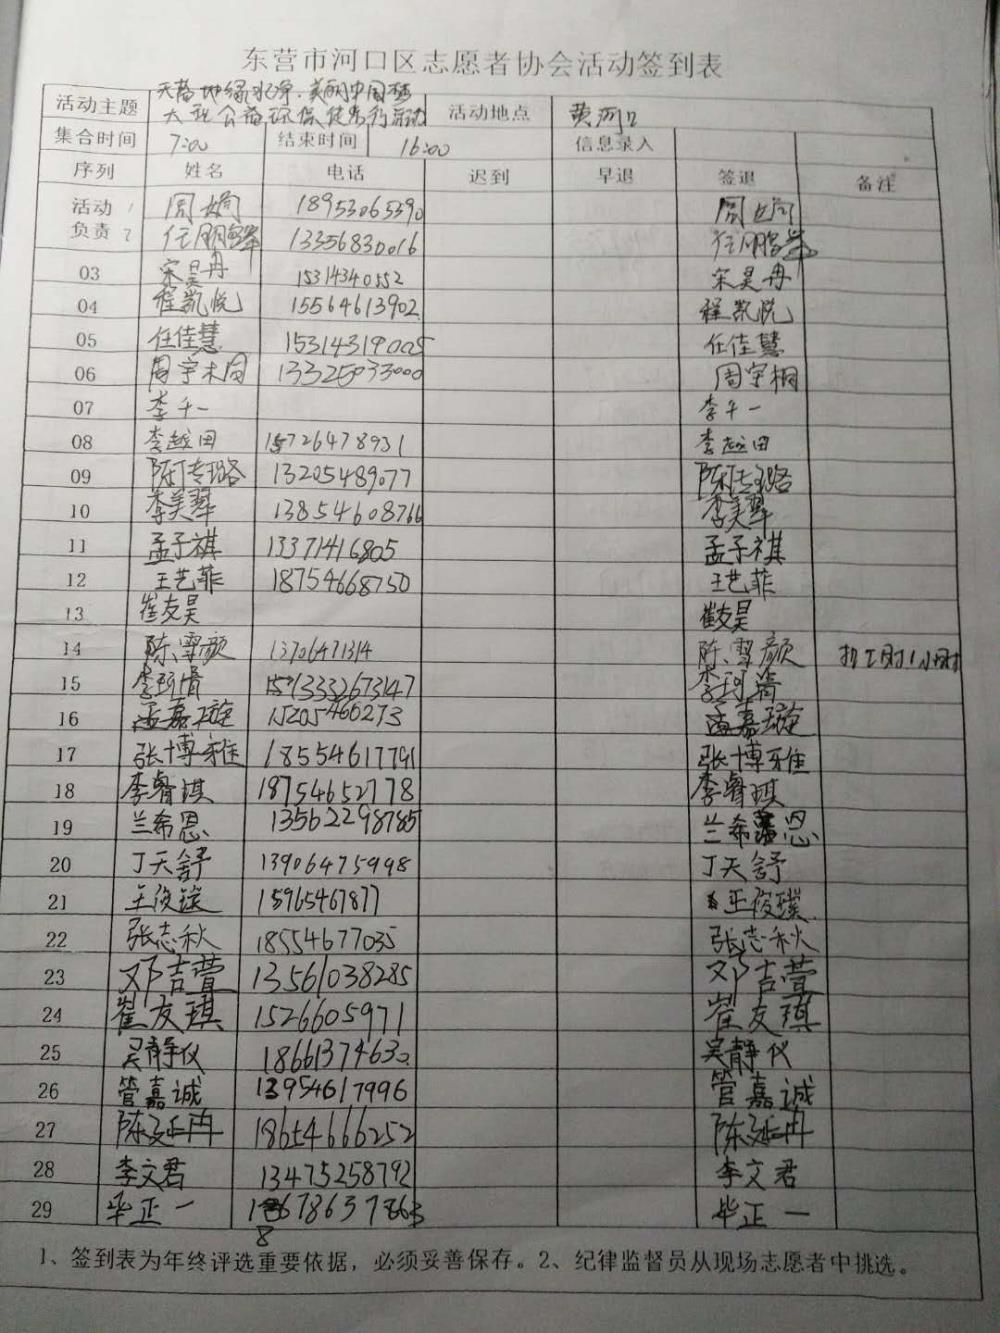 东营市河口区志愿者协会活动签到表
活动主题 天蓝地绿水净·美丽中国梦 活动地点 黄河口
大型公益环保徒步行活动
集合时间 7:00 结束时间 16:00 信息录入
序列 姓名 电话 迟到 早退 签退 备注
活动 1 周婀 18953065390 周婀
负责 2 任鹏举 13356830016 任鹏举
03 宋昊冉 15314340552 宋昊冉
04 程凯悦 15564613902 程凯悦
05 任佳慧 15314319005 任佳慧
06 周宇桐 13325033000 周宇桐
07 李千一 李千一
08 李越田 15726478931 李越田
09 陈传璐 13205489077 陈传璐
10 李美翠 13854608766 李美翠
11 孟子祺 13371416805 孟子祺
12 王艺菲 18754668750 王艺菲
13 崔友昊 崔友昊
14 陈雪颜 13706471314 陈雪颜 扣工时1小时
15 李珂 13332673147 李珂
16 孟嘉璇 15205466273 孟嘉璇
17 张博雅 18554617791 张博雅
18 李睿琪 18754652778 李睿琪
19 兰希恩 13562298785 兰希恩
20 丁天舒 13906475998 丁天舒
21 王俊璞 15965467877 王俊璞
22 张志秋 18554677035 张志秋
23 邓吉萱 13561038285 邓吉萱
24 崔友琪 1526605971 崔友琪
25 吴静仪 18661374630 吴静仪
26 管嘉诚 13954617996 管嘉诚
27 陈延冉 18654666252 陈延冉
28 李文君 13475258792 李文君
29 毕正一 18678637863 毕正一
8
1、签到表为年终评选重要依据，必须妥善保存。2、纪律监督员从现场志愿者中挑选。